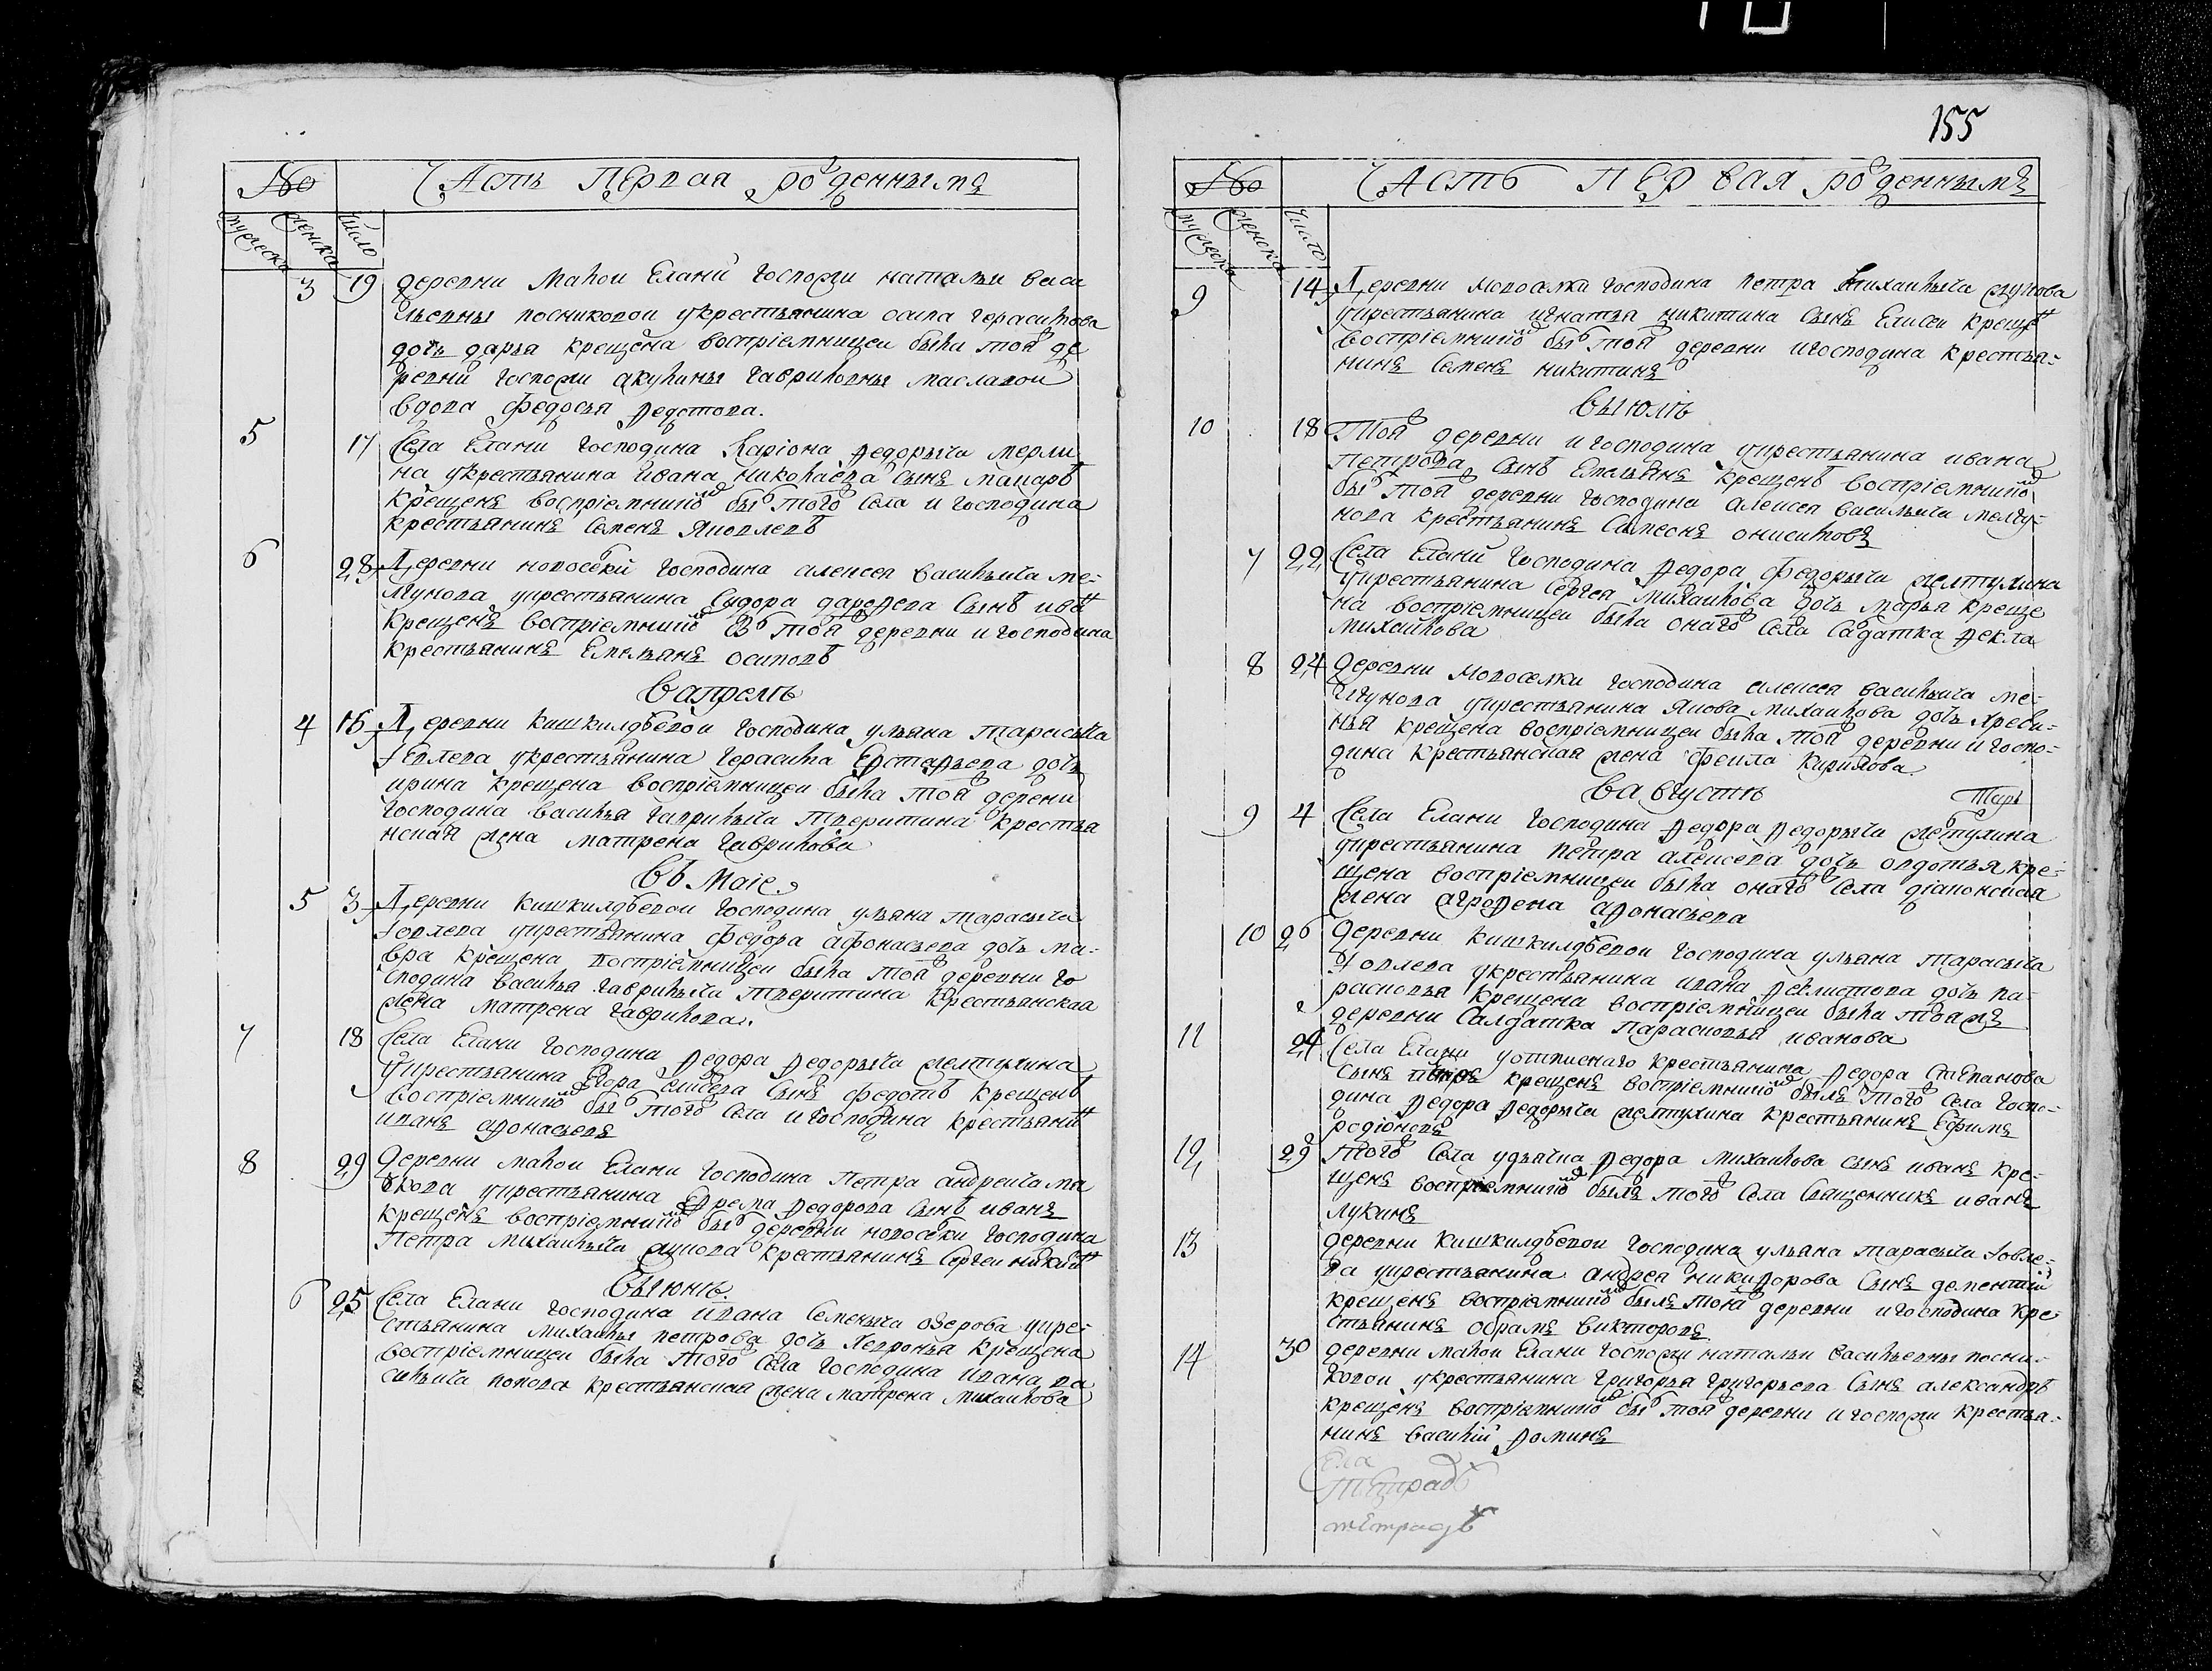 155
No Часть первая роденнымъ
мужеска женска число
3 19 деревни малои Елани госпожи натальи васи
льевны посниковои укрестьянина осипа герасимова
дочь дарья крещена воспріемницеи была тои де
ревни госпожи акулины гавриловны масловои
вдова федосья федотова.
5 17 Села Елани господина Ларіона федорыча мерли
на укрестьянина ивана николаева сынъ макаръ
крещенъ воспріемникомъ былъ того села и господина
крестьянинъ семенъ яковлевъ
6 28 Деревни новоселки господина алексея васильича ме-
щунова укрестьянина Сидора дарофеева сынъ иванъ
крещенъ воспріемникомъ былъ тои деревни и господина
крестьянинъ Емельянъ осиповъ
в апреле
4 15 Деревни кишкилдѣевои господина ульяна тарасыча
Іевлева укрестьянина герасима Евстафьева дочь
ирина крещена воспріемницеи была тои деревни
господина василья гаврилыча тверитина крестья
нская жена матрена гаврилова
въ Маіе
5 3 Деревни кишкилдѣевои господина ульяна тарасыча
Іовлева укрестьянина федора афонасьева дочь ма-
вра крещена воспріемницеи была тои деревни го
сподина василья гаврилыча тверитина крестьянская
жена матрена гаврилова.
7 18 Села Елани господина федора федорыча желтухина
укрестьянина Егора елисеева сынъ федотъ крещенъ
воспріемникомъ былъ того села и господина крестьянинъ
иванъ афонасьевъ
8 29 Деревни малои Елани господина Петра андреича ма
укрестьянина Ефрема федорова сынъ иванъ
крещенъ воспріемникомъ былъ деревни новоселки господина
Петра михаилыча крестьянинъ Сергеи никитинъ
въ июне.
6 25 Села Елани господина ивана Семеныча озерова укре-
стьянина михаилы петрова дочь Хевронья крещена
воспріемницеи была того села господина ивана ва
сильича попова крестьянская жена матрена михаилова
No Часть первая роденнымъ
мужеска женска число
9 14 Деревни новоселки господина петра михаилыча
укрестьянина игнатья никитина сынъ Елисеи крещенъ
воспріемникомъ былъ тои деревни и господина крестья-
нинъ Семенъ никитинъ
въ июле
10 18 Тои деревни и господина укрестьянина ивана
Петрова сынъ Емельянъ крещенъ воспріемникомъ
былъ тои деревни господина алексея васильича мещу-
нова крестьянинъ Самсонъ онисимовъ
7 22 Села Елани господина федора федорыча желтухина
укрестьянина Сергея михаилова дочь марья креще
на воспріемницеи была онаго села салдатка фекла
михаилова
8 24 деревни новоселки господина алексея васильича ме-
щунова укрестьянина якова михаилова дочь хреви-
нья крещена воспріемницеи была тои деревни и госпо-
дина крестьянская жена фекла кирилова
в августе
9 4 Села Елани господина федора федорыча желтухина
укрестьянина петра алексеева дочь овдотья кре-
щена воспріемницеи была онаго села дьяконская
жена агрофена афонасьева
10 26 деревни кишкилдѣевои господина ульяна тарасыча
Іовлева укрестьянина ивана феклистова дочь па-
расковья крещена воспріемницеи была тоя жъ
деревни Салдатка парасковья иванова
11 24 Села Елани уотписнаго крестьянина федора Степанова
сынъ петръ крещенъ воспріемникомъ былъ того села госпо-
дина федора федорыча желтухина крестьянинъ Ефимъ
родіоновъ
12 29 Того села удьячка федора михаилова сынъ иванъ кре-
щенъ воспріемникомъ былъ того села Священникъ иванъ
лукинъ
13 деревни кишкилдѣевои господина ульяна тарасыча Іовле-
ва укрестьянина андрея никифорова сынъ дементіи
крещенъ воспріемникомъ былъ тои деревни и господина кре
стьянинъ обрамъ викторовъ
14 30 деревни малои Елани госпожи натальи васильевны посни-
ковои укрестьянина григорья григорьева сынъ александръ
крещенъ воспріемникомъ былъ тои деревни и госпожи крестья-
нинъ василіи фоминъ
села
тетрадь
тетрадь